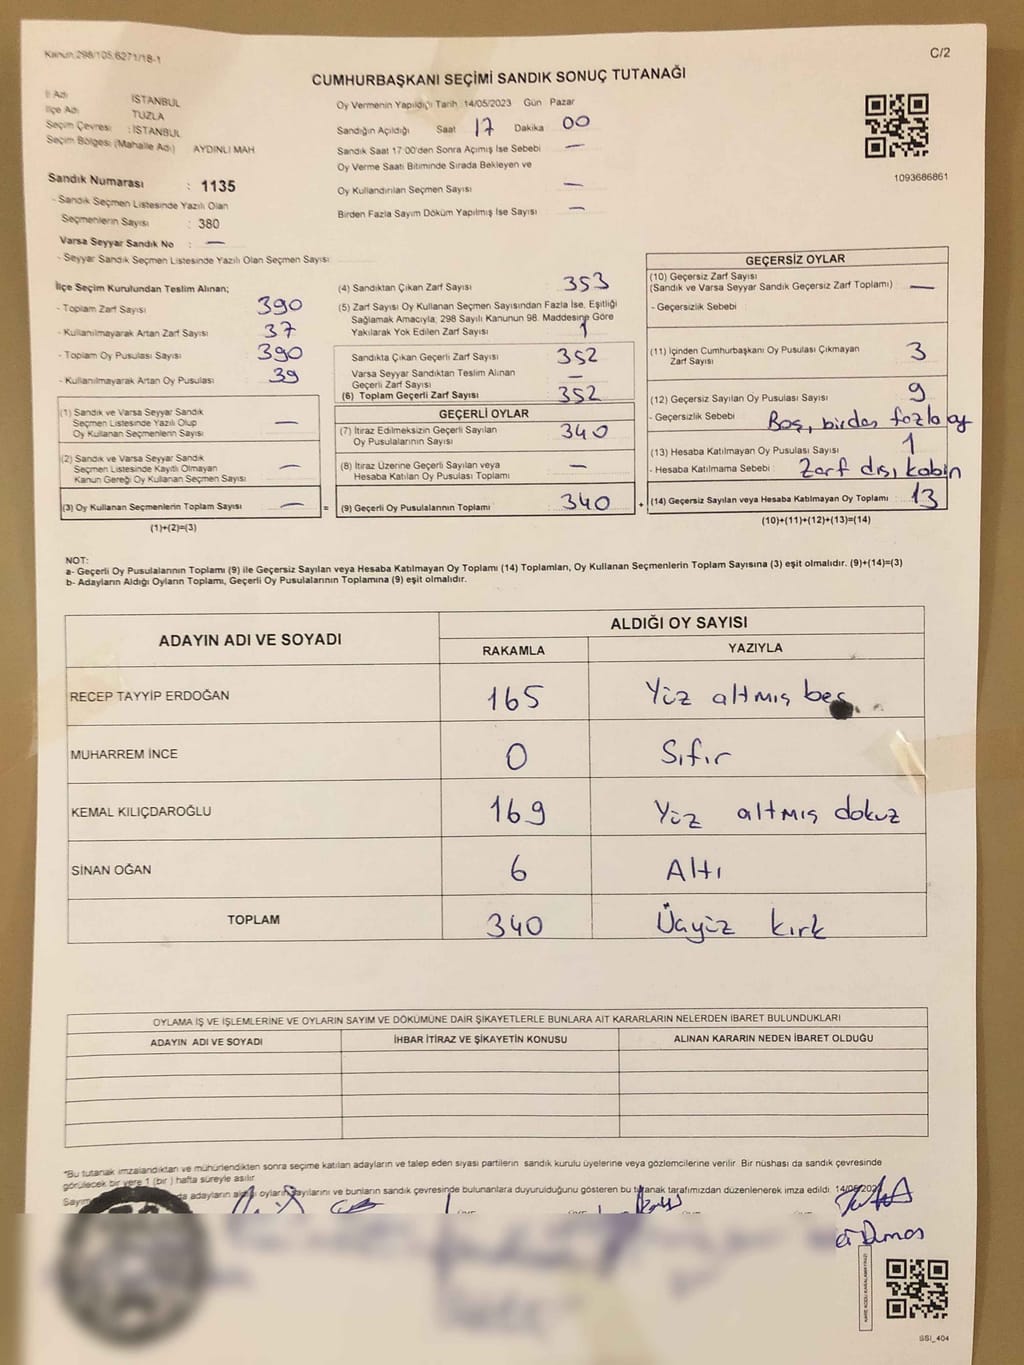 Kanun:298/105,6271/18-1
C/2
CUMHURBAŞKANI SEÇİMİ SANDIK SONUÇ TUTANAĞI
İl Adı İSTANBUL
İlçe Adı TUZLA
Seçim Çevresi : İSTANBUL
Seçim Bölgesi (Mahalle Adı) AYDINLI MAH
Sandık Numarası : 1135
- Sandık Seçmen Listesinde Yazılı Olan
Seçmenlerin Sayısı : 380
Varsa Seyyar Sandık No : —
- Seyyar Sandık Seçmen Listesinde Yazılı Olan Seçmen Sayısı
Oy Vermenin Yapıldığı Tarih 14/05/2023 Gün Pazar
Sandığın Açıldığı Saat 17 Dakika 00
Sandık Saat 17:00'den Sonra Açımış İse Sebebi —
Oy Verme Saati Bitiminde Sırada Bekleyen ve
Oy Kullandırılan Seçmen Sayısı —
Birden Fazla Sayım Döküm Yapılmış İse Sayısı —
1093686861
İlçe Seçim Kurulundan Teslim Alınan;
- Toplam Zarf Sayısı 390
- Kullanılmayarak Artan Zarf Sayısı 37
- Toplam Oy Pusulası Sayısı 390
- Kullanılmayarak Artan Oy Pusulası 39
(1) Sandık ve Varsa Seyyar Sandık
Seçmen Listesinde Yazılı Olup
Oy Kullanan Seçmenlerin Sayısı —
(2) Sandık ve Varsa Seyyar Sandık
Seçmen Listesinde Kayıtlı Olmayan
Kanun Gereği Oy Kullanan Seçmen Sayısı —
(3) Oy Kullanan Seçmenlerin Toplam Sayısı —
(1)+(2)=(3)
(4) Sandıktan Çıkan Zarf Sayısı 353
(5) Zarf Sayısı Oy Kullanan Seçmen Sayısından Fazla İse, Eşitliği
Sağlamak Amacıyla, 298 Sayılı Kanunun 98. Maddesine Göre
Yakılarak Yok Edilen Zarf Sayısı 1
Sandıkta Çıkan Geçerli Zarf Sayısı 352
Varsa Seyyar Sandıktan Teslim Alınan
Geçerli Zarf Sayısı —
(6) Toplam Geçerli Zarf Sayısı 352
GEÇERLİ OYLAR
(7) İtiraz Edilmeksizin Geçerli Sayılan
Oy Pusulalarının Sayısı 340
(8) İtiraz Üzerine Geçerli Sayılan veya
Hesaba Katılan Oy Pusulası Toplamı —
= (9) Geçerli Oy Pusulalarının Toplamı 340 +
GEÇERSİZ OYLAR
(10) Geçersiz Zarf Sayısı
(Sandık ve Varsa Seyyar Sandık Geçersiz Zarf Toplamı) —
- Geçersizlik Sebebi
(11) İçinden Cumhurbaşkanı Oy Pusulası Çıkmayan
Zarf Sayısı 3
(12) Geçersiz Sayılan Oy Pusulası Sayısı 9
- Geçersizlik Sebebi Boş, birden fazla oy
(13) Hesaba Katılmayan Oy Pusulası Sayısı 1
- Hesaba Katılmama Sebebi : Zarf dışı kabin
(14) Geçersiz Sayılan veya Hesaba Katılmayan Oy Toplamı 13
(10)+(11)+(12)+(13)=(14)
NOT:
a- Geçerli Oy Pusulalarının Toplamı (9) ile Geçersiz Sayılan veya Hesaba Katılmayan Oy Toplamı (14) Toplamları, Oy Kullanan Seçmenlerin Toplam Sayısına (3) eşit olmalıdır. (9)+(14)=(3)
b- Adayların Aldığı Oyların Toplamı, Geçerli Oy Pusulalarının Toplamına (9) eşit olmalıdır.
ADAYIN ADI VE SOYADI ALDIĞI OY SAYISI
RAKAMLA YAZIYLA
RECEP TAYYİP ERDOĞAN 165 Yüz altmış beş
MUHARREM İNCE 0 Sıfır
KEMAL KILIÇDAROĞLU 169 Yüz altmış dokuz
SİNAN OĞAN 6 Altı
TOPLAM 340 Üçyüz kırk
OYLAMA İŞ VE İŞLEMLERİNE VE OYLARIN SAYIM VE DÖKÜMÜNE DAİR ŞİKAYETLERLE BUNLARA AİT KARARLARIN NELERDEN İBARET BULUNDUKLARI
ADAYIN ADI VE SOYADI İHBAR İTİRAZ VE ŞİKAYETİN KONUSU ALINAN KARARIN NEDEN İBARET OLDUĞU
"Bu tutanak imzalandıktan ve mühürlendikten sonra seçime katılan adayların ve talep eden siyasi partilerin sandık kurulu üyelerine veya gözlemcilerine verilir. Bir nüshası da sandık çevresinde
görülecek bir yere 1 (bir) hafta süreyle asılır.
Sayım adayların aldığı oyların sayılarını ve bunların sandık çevresinde bulunanlara duyurulduğunu gösteren bu tutanak tarafımızdan düzenlenerek imza edildi. 14/05/202
SSI_404